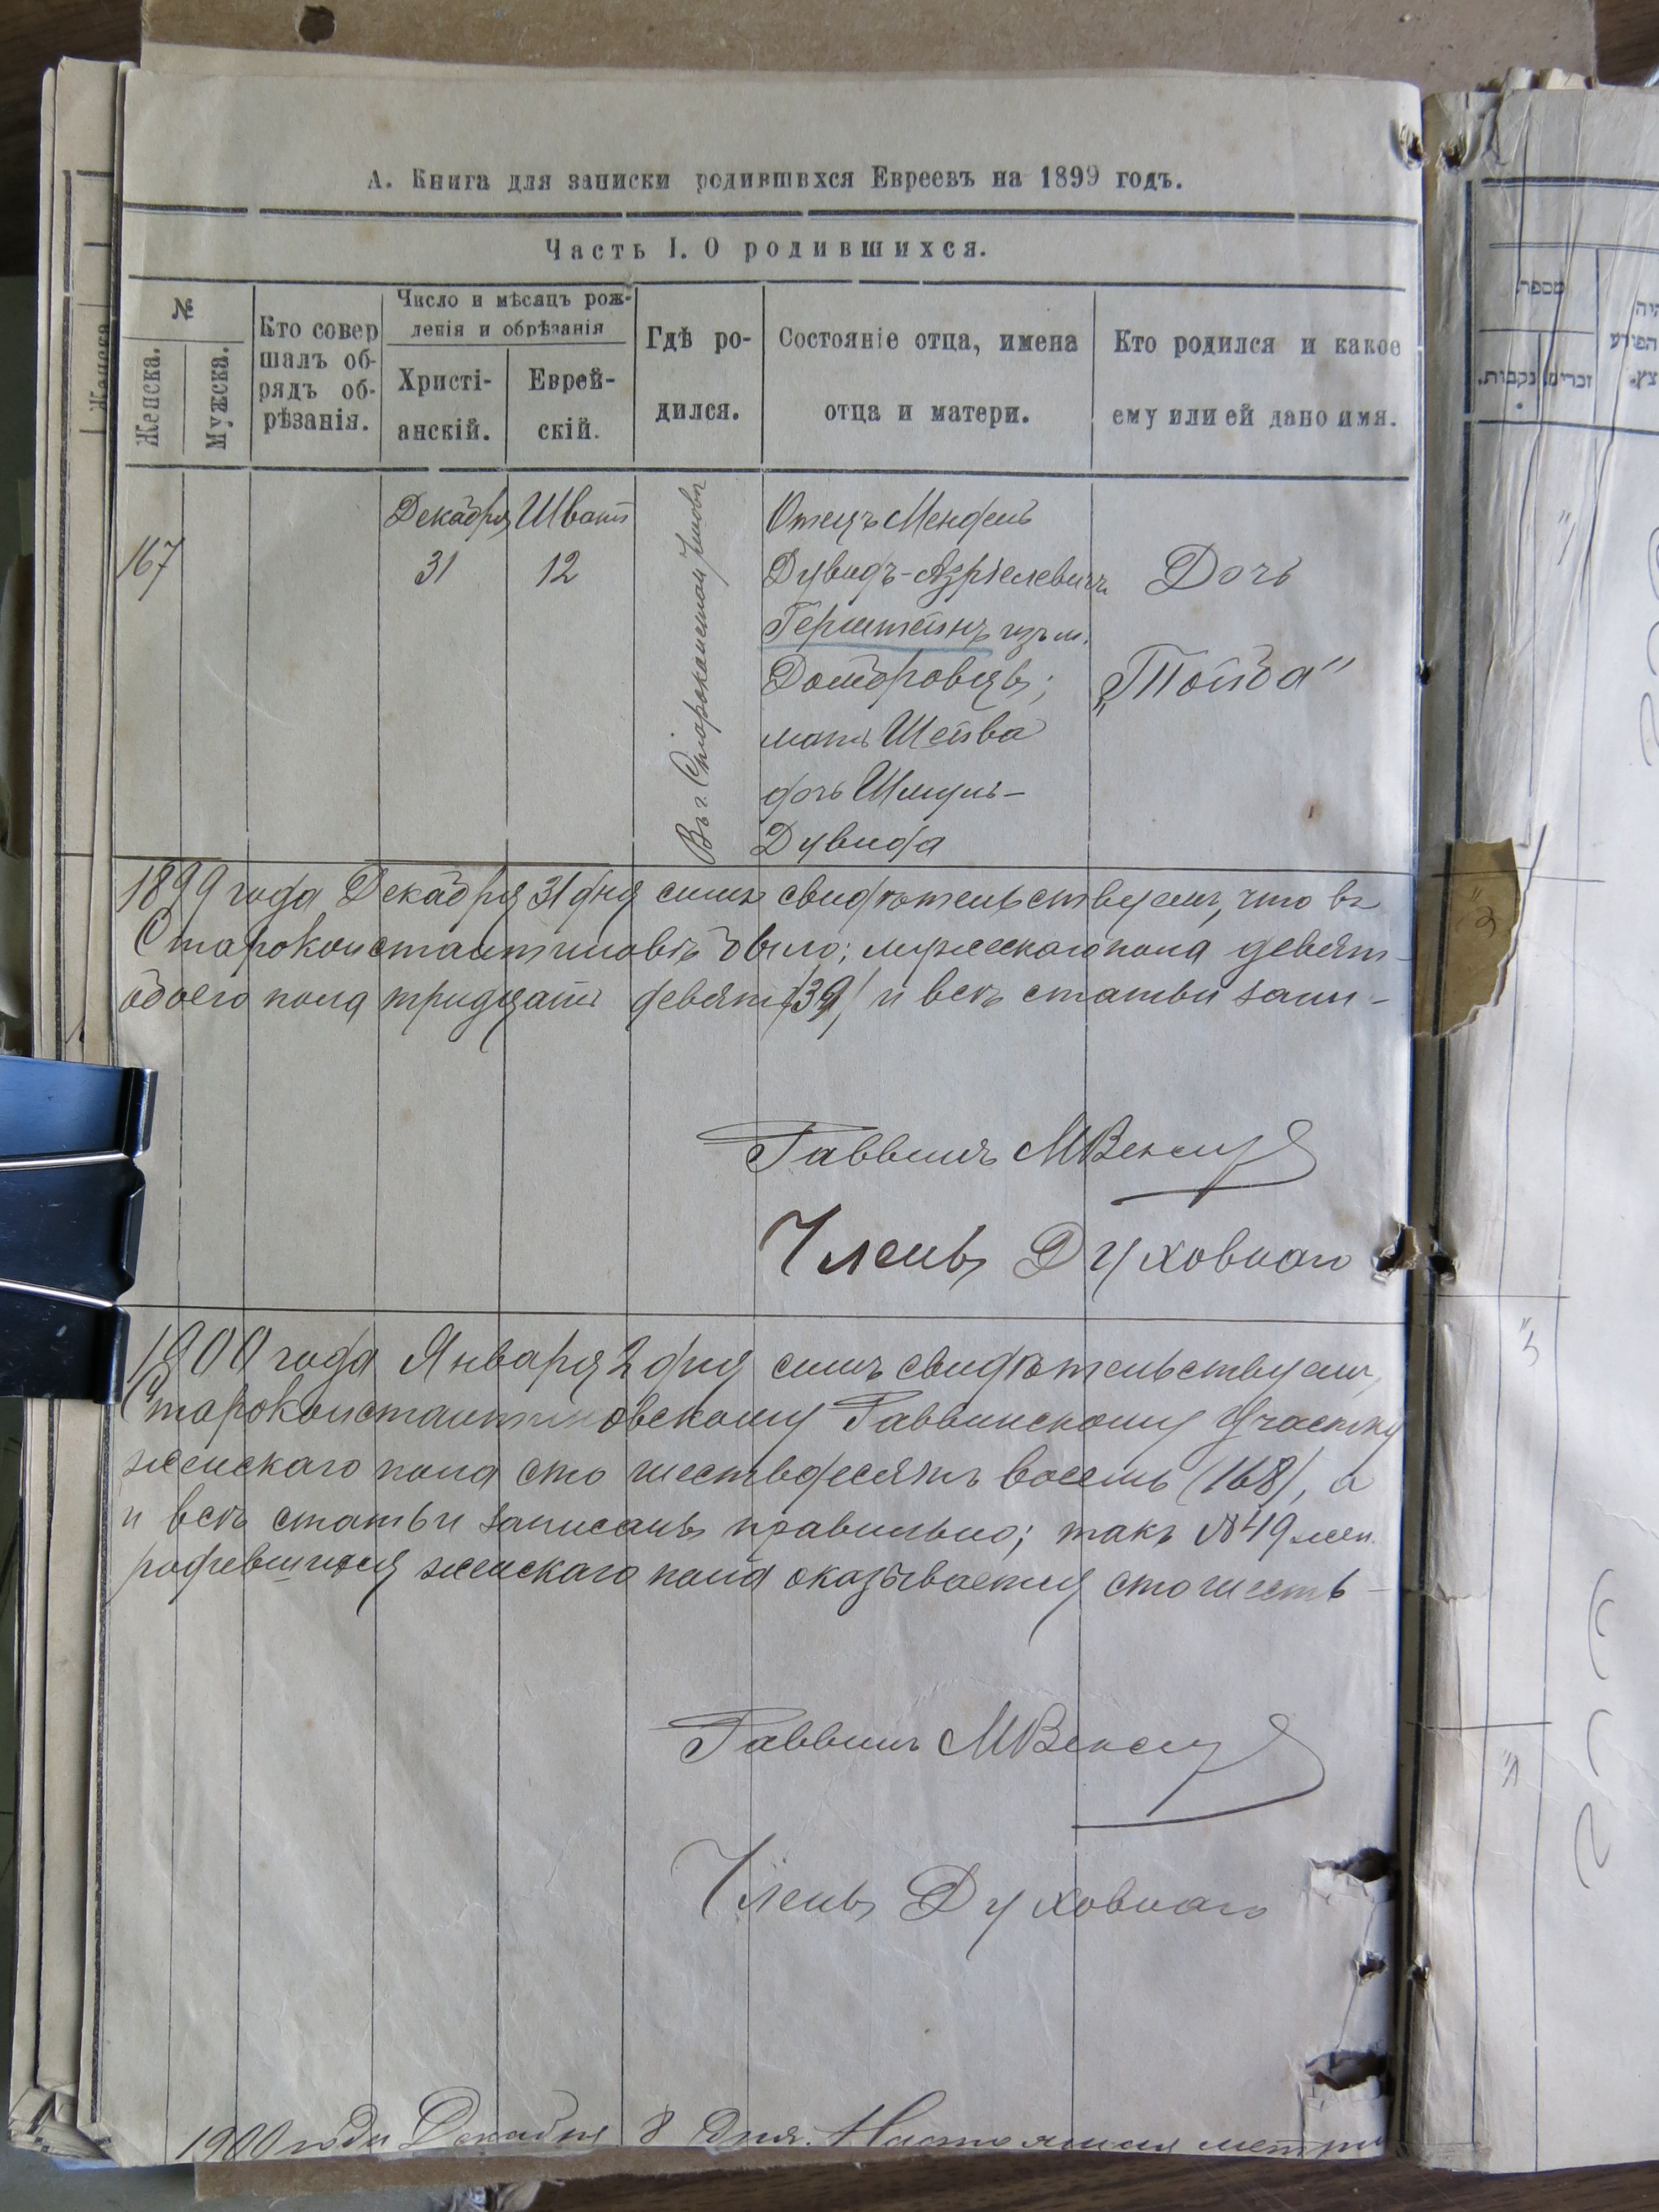 А. Книга для записки родившихся Евреевъ на 1899 годъ.
Часть I. О родившихся.
№
Женска.
Мужска.
Кто совер
шалъ об-
рядъ об-
рѣзанія.
Число и мѣсяцъ рож-
денія и обрѣзанія
Христі-
анскій.
Еврей-
скій.
Гдѣ ро-
дился.
Состояніе отца, имена
отца и матери.
Кто родился и какое
ему или ей дано имя.
167
Декабря
31
Шватъ
12
Въ г. Староконстантиновѣ
Отецъ Мендель
Дувидъ-Азріелевичъ
Герштейнъ изъ м.
мать Шейва
дочь Шмуль-
Дувида
Дочь
„Тойба“
1899 года Декабря 31 дня симъ свидѣтельствуемъ, что въ
Староконстантиновѣ было: мужескаго пола девят-
обоего пола тридцать девять /39/ и всѣ статьи запи-
Раввинъ М Векслер
Членъ Духовнаго
1900 года Января 2 дня симъ свидѣтельствуемъ,
Староконстантиновскому Раввинскому Участку
женскаго пола сто шестьдесятъ восемь (168), а
и всѣ статьи записаны правильно; такъ № 49 жен.
родившихся женскаго пола оказывается сто шесть-
Раввинъ М Векслер
Членъ Духовнаго
1900 года Декабря 8 дня. Настоящая метри
מספר
זכרים
נקבות.